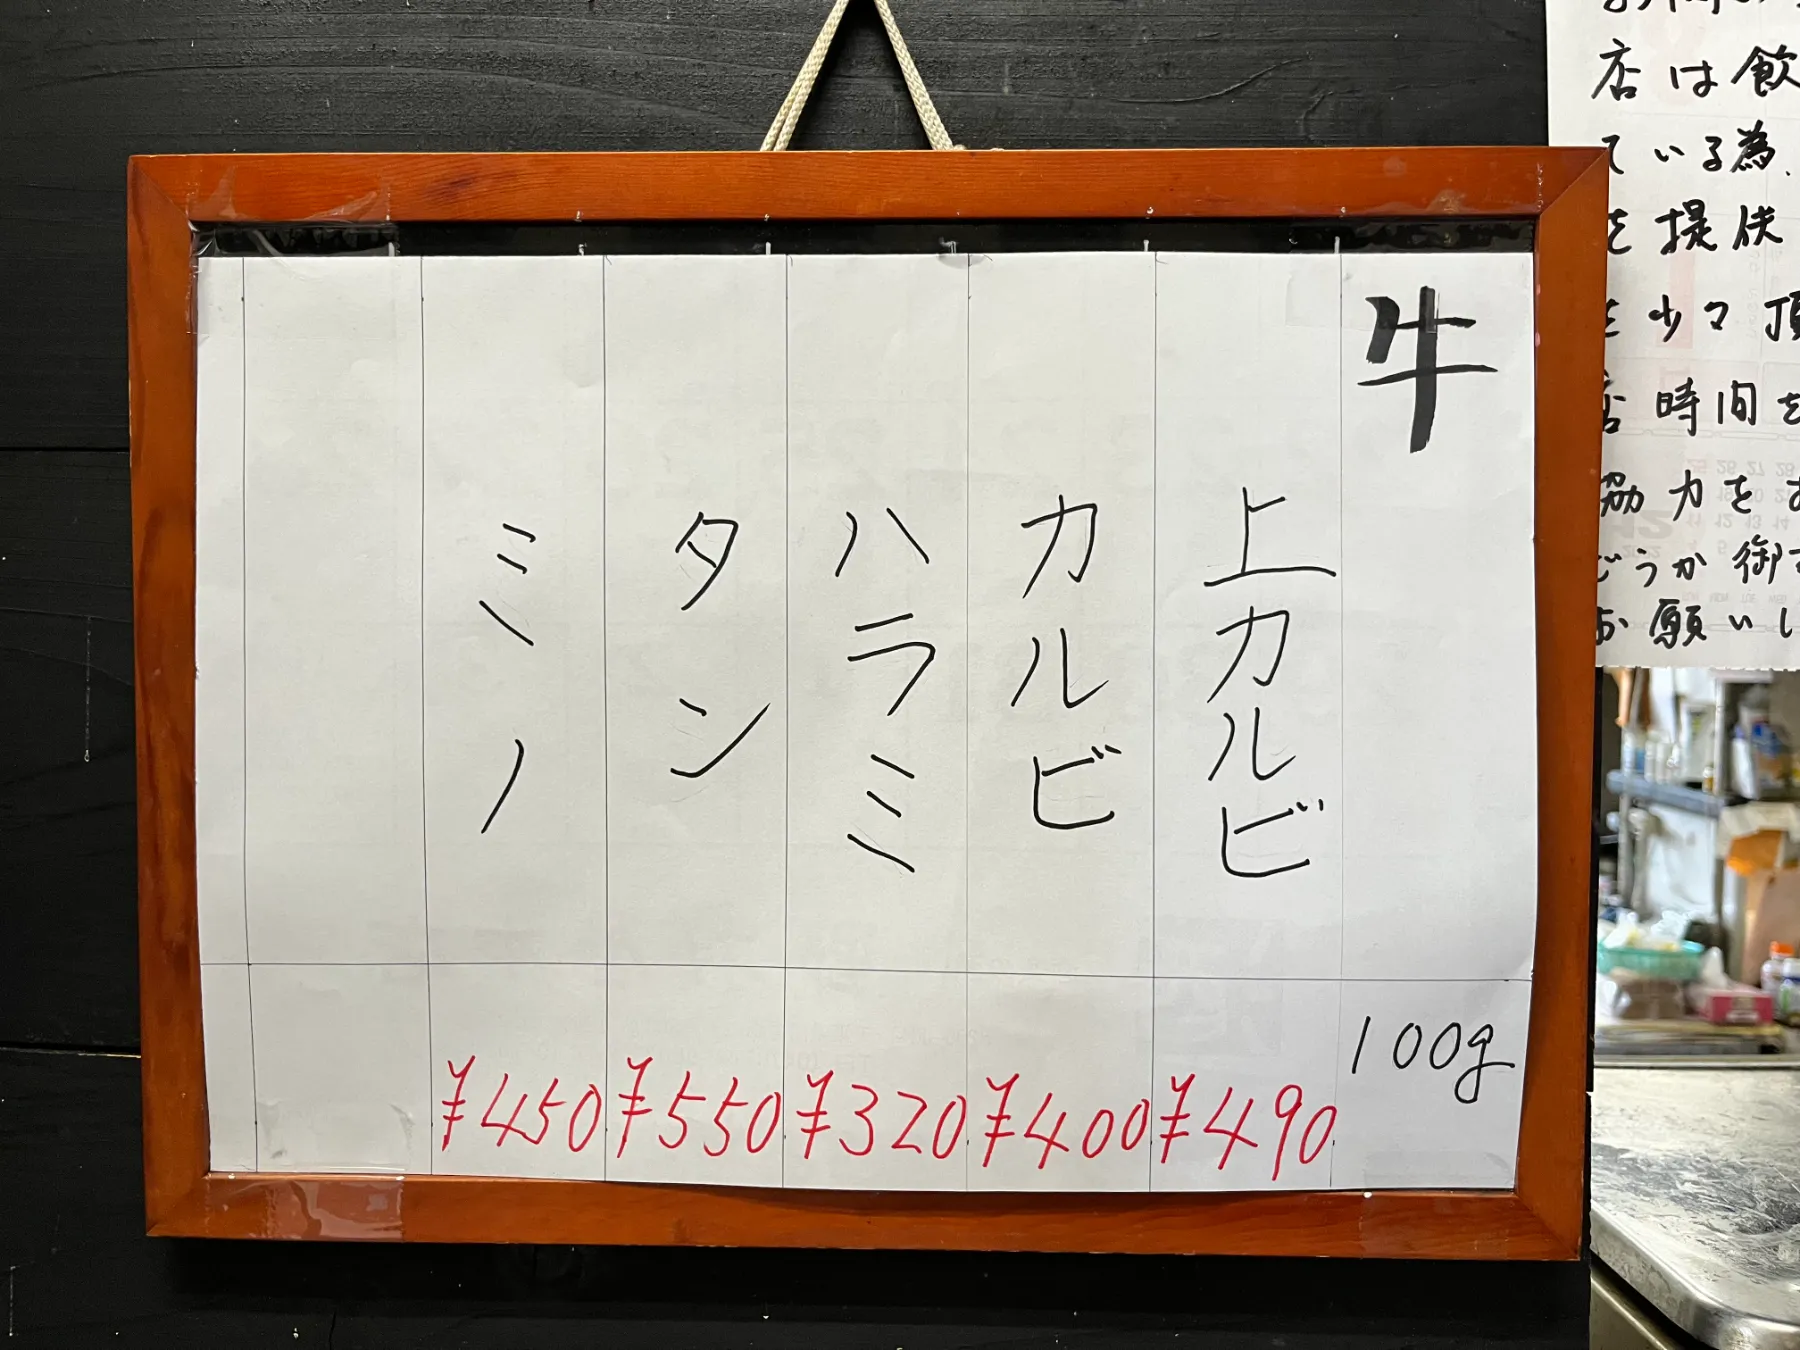 牛 100g
上カルビ ¥490
カルビ ¥400
ハラミ ¥320
タン ¥550
ミノ ¥450
店は飲
ている為、
を提供
を少々頂
店時間を
協力をお
どうか御
お願いし